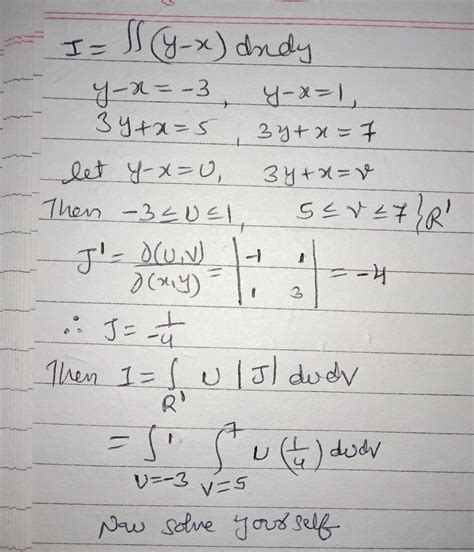 I = ∬ (y-x) dxdy
y-x = -3, y-x = 1,
3y+x = 5, 3y+x = 7
let y-x = U, 3y+x = v
Then -3 ≤ U ≤ 1, 5 ≤ v ≤ 7 } R'
J' = ∂(U,V)/∂(x,y) = | -1 1 ; 1 3 | = -4
∴ J = 1/-4
Then I = ∫_R' U |J| dudv
= ∫_{U=-3}^{1} ∫_{V=5}^{7} U (1/4) dudv
Now solve yourself